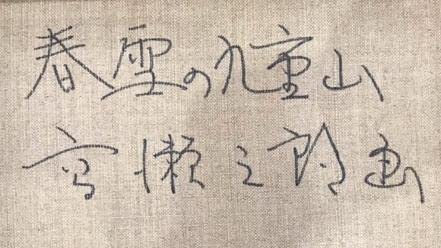 春雪の九重山
高瀬之 画